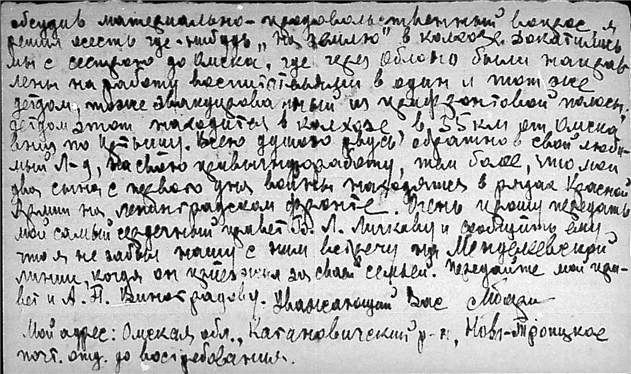 обсудив материально-продовольственный вопрос я
решил осесть где-нибудь „на землю" в колхозе. Докатились
мы с сестрою до Омска, где через Облоно были направ
лены на работу воспитателями в один и тот же
детдом, тоже эвакуированный из прифронтовой полосы.
Детдом этот находится в колхозе, в 55 км от Омска
вниз по Иртышу. Всею душою рвусь обратно в свой люби-
мый Л-д, на свою привычную работу, тем более, что мои
два сына с первого дня войны находятся в рядах Красной
Армии на Ленинградском фронте. Очень прошу передать
мой самый сердечный привет Б. Л. Личкову и сообщить ему,
что я не забыл нашу с ним встречу на Менделеевской
линии, когда он приезжал за своей семьей. Передайте мой при-
вет и А. П. Виноградову. Уважающий Вас
Мой адрес: Омская обл., Кагановичский р-н, Ново-Троицкое
почт. отд. до востребования.